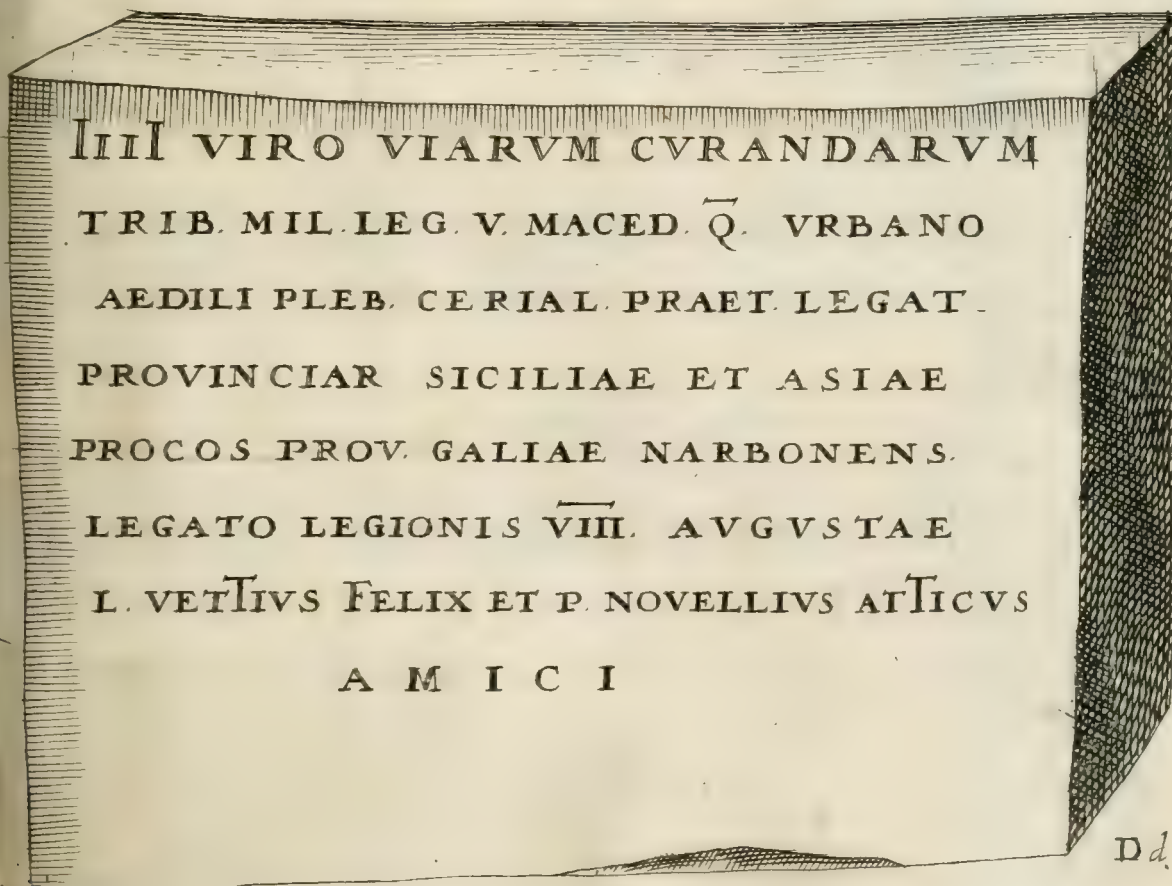 IIIII VIRO VIARVM CVRANDARVM
TRIB. MIL. LEG. V. MACED. Q̅. VRBANO
AEDILI PLEB. CERIAL. PRAET. LEGAT.
PROVINCIAR SICILIAE ET ASIAE
PROCOS PROV. GALIAE NARBONENS.
LEGATO LEGIONIS V̅I̅I̅I̅. AVGVSTAE
L. VETTIVS FELIX ET P. NOVELLIVS ATTICVS
AMICI
Dd